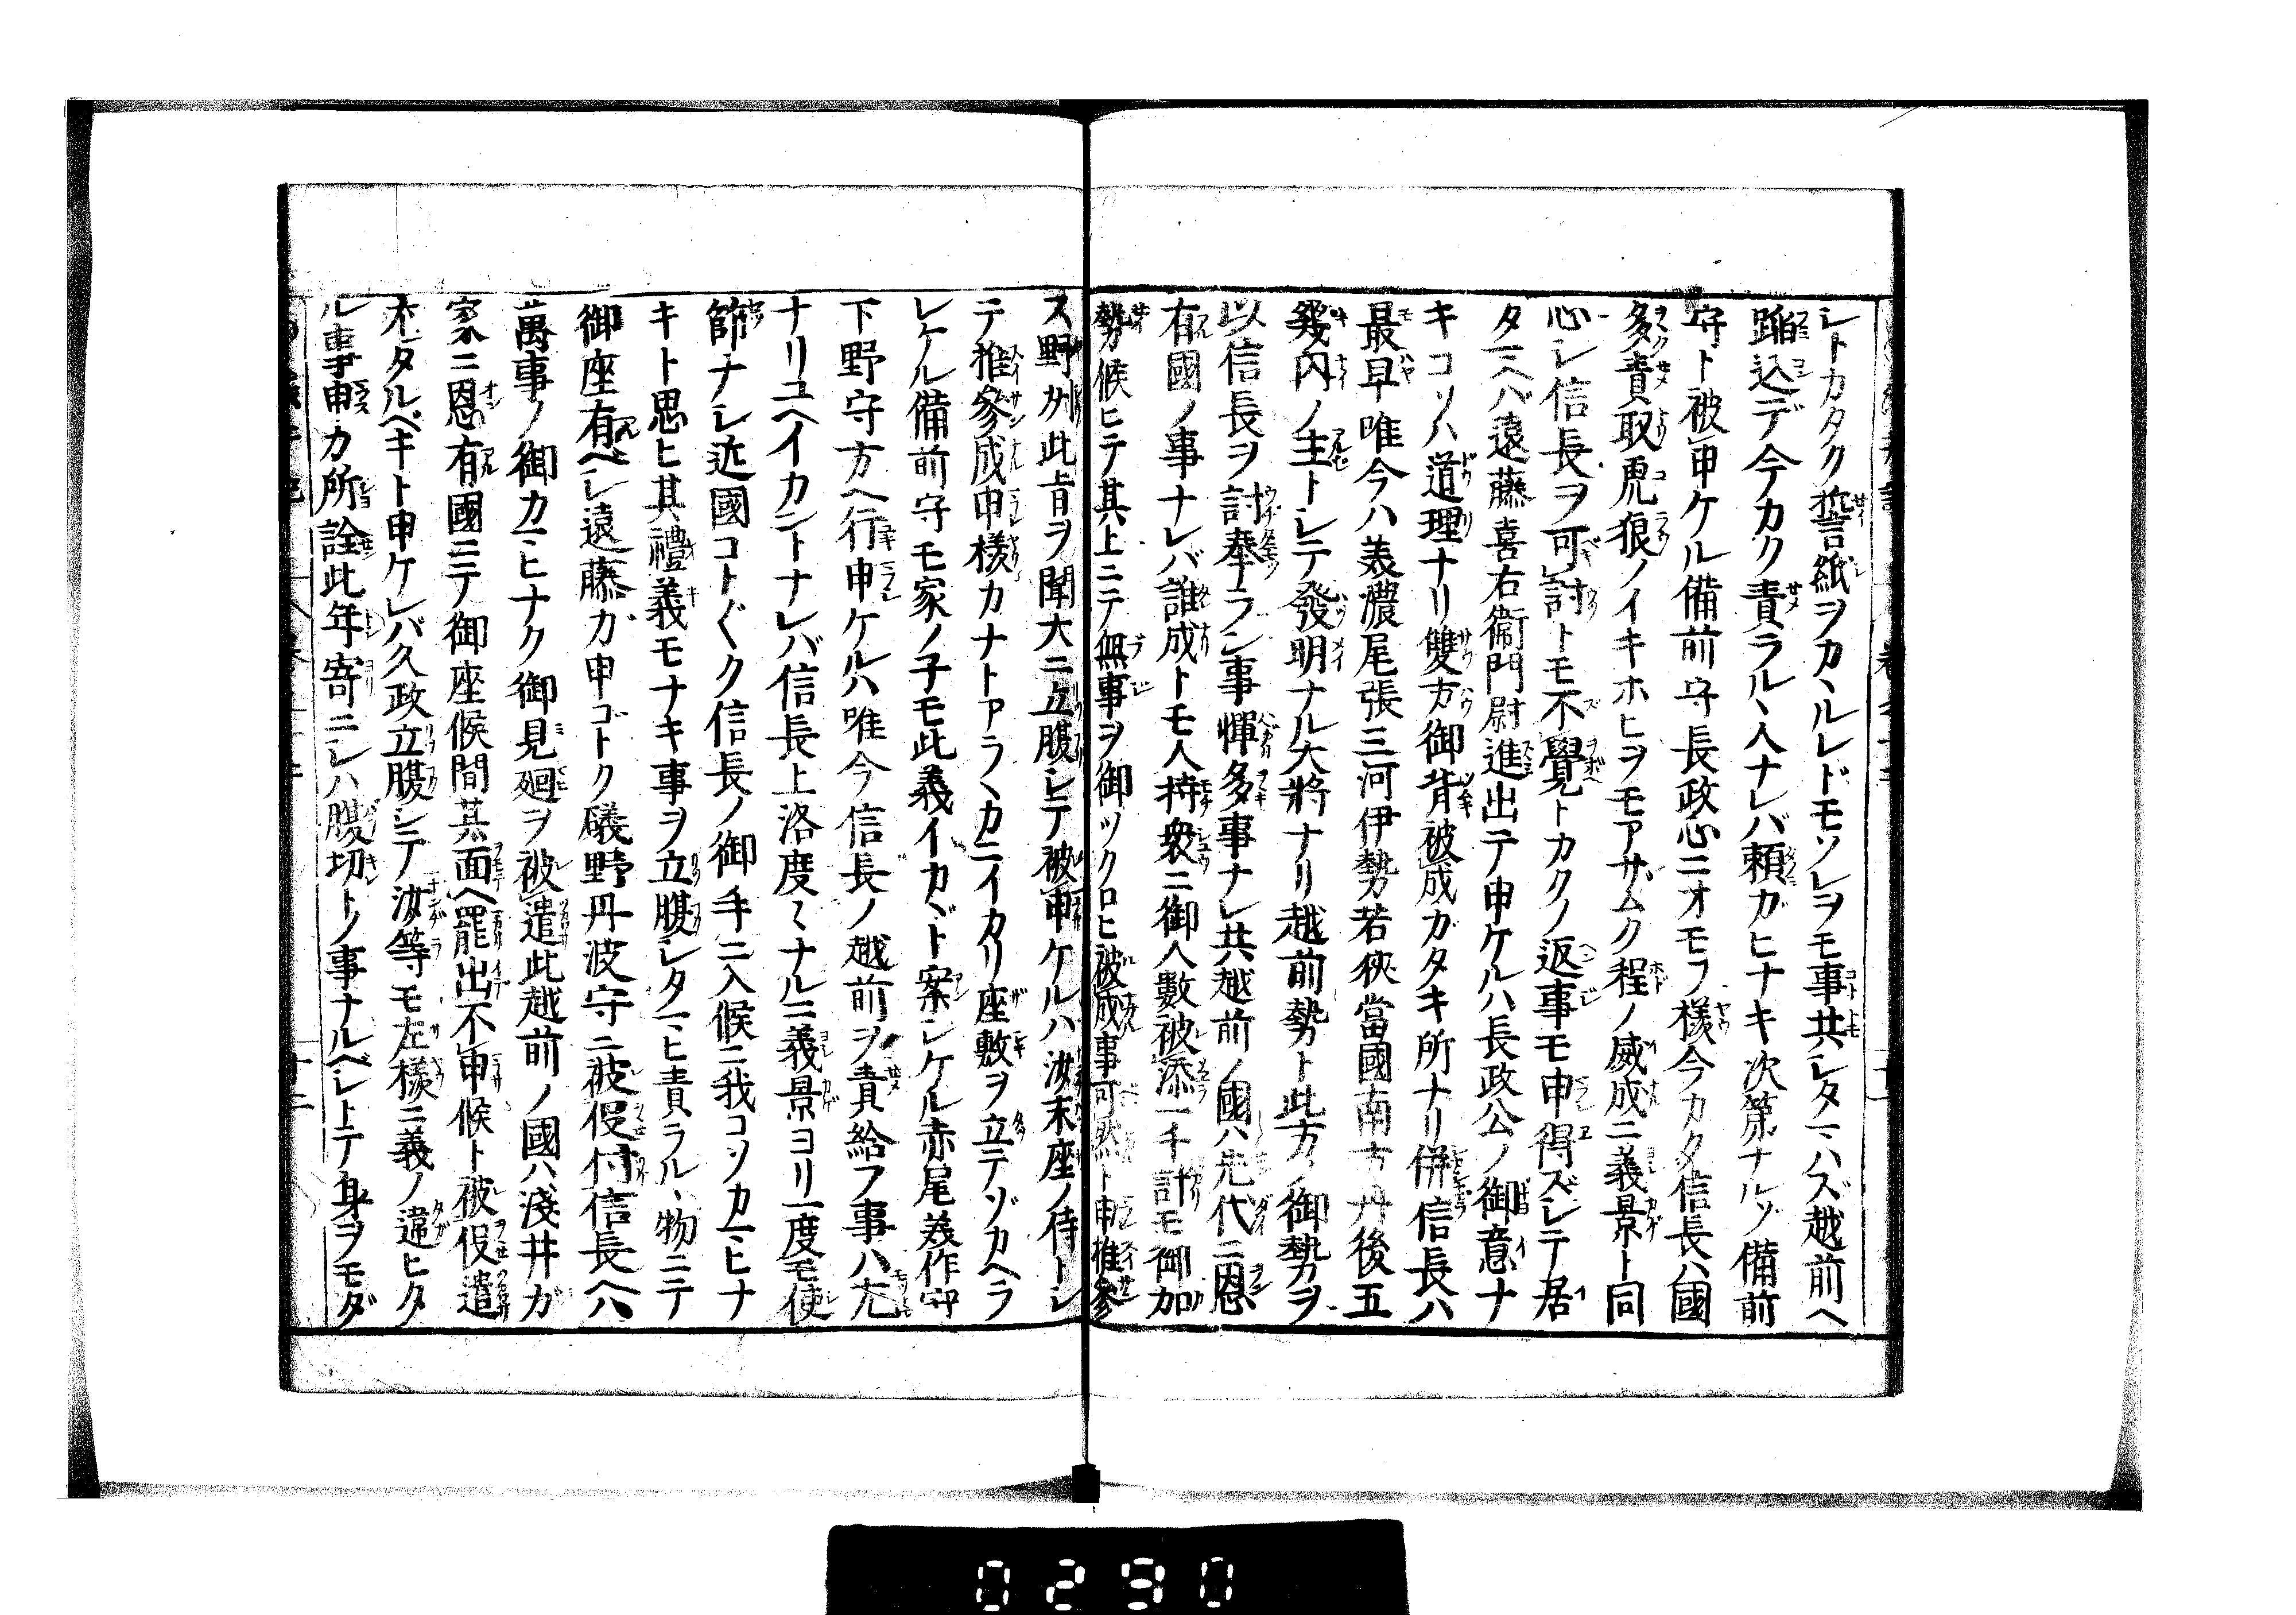 シトカタク誓紙ヲカヽルレドモソレヲモ事共シタマハズ越前ヘ
蹈込デ今カク責ラルヽ人ナレバ頼ガヒナキ次第ナルゾ備前
守ト被申ケル備前守長政心ニオモフ様今カタ信長ハ國
多責取虎狼ノイキホヒヲモアザムク程ノ威成ニ義景ト同
心シ信長ヲ可討トモ不覺トカクノ返事モ申得ズシテ居
タマヘバ遠藤喜右衞門尉進出テ申ケルハ長政公ノ御意ナ
キコソハ道理ナリ雙方御背被成ガタキ所ナリ併信長ハ
最早唯今ハ美濃尾張三河伊勢若狹當國南方丹後五
畿内ノ主トシテ發明ナル大將ナリ越前勢ト此方ノ御勢ヲ
以信長ヲ討奉ラン事憚多事ナレ共越前ノ國ハ先代ニ恩
有國ノ事ナレバ誰成トモ人持衆ニ御人數被添一千計モ御加
勢候ヒテ其上ニテ無事ヲ御ツクロヒ被成事可然ト申推參
ス野州此旨ヲ聞大ニ立腹シテ被申ケルハ汝末座ノ侍トシ
テ推參成申様カナトアラヽカニイカリ座敷ヲ立テゾカヘラ
レケル備前守モ家ノ子モ此義イカヾト案シケル赤尾美作守
下野守方ヘ行申ケルハ唯今信長ノ越前ヲ責給フ事ハ尤
ナリユヘイカントナレバ信長上洛度々ナルニ義景ヨリ一度モ使
節ナシ近國コト〲ク信長ノ御手ニ入候ニ我コソカマヒナ
キト思ヒ其禮義モナキ事ヲ立腹シタマヒ責ラルヽ物ニテ
御座有ベシ遠藤ガ申ゴトク礒野丹波守ニ被仰付信長ヘハ
萬事ノ御カマヒナク御見廻ヲ被遣此越前ノ國ハ淺井ガ
家ニ恩有國ニテ御座候間其面ヘ罷出不申候ト被仰遣
尤タルベキト申ケレバ久政立腹シテ汝等モ左様ニ義ノ違ヒタ
ル事申カ所詮此年寄ニシハ腹切トノ事ナルベシトテ身ヲモダ
0290